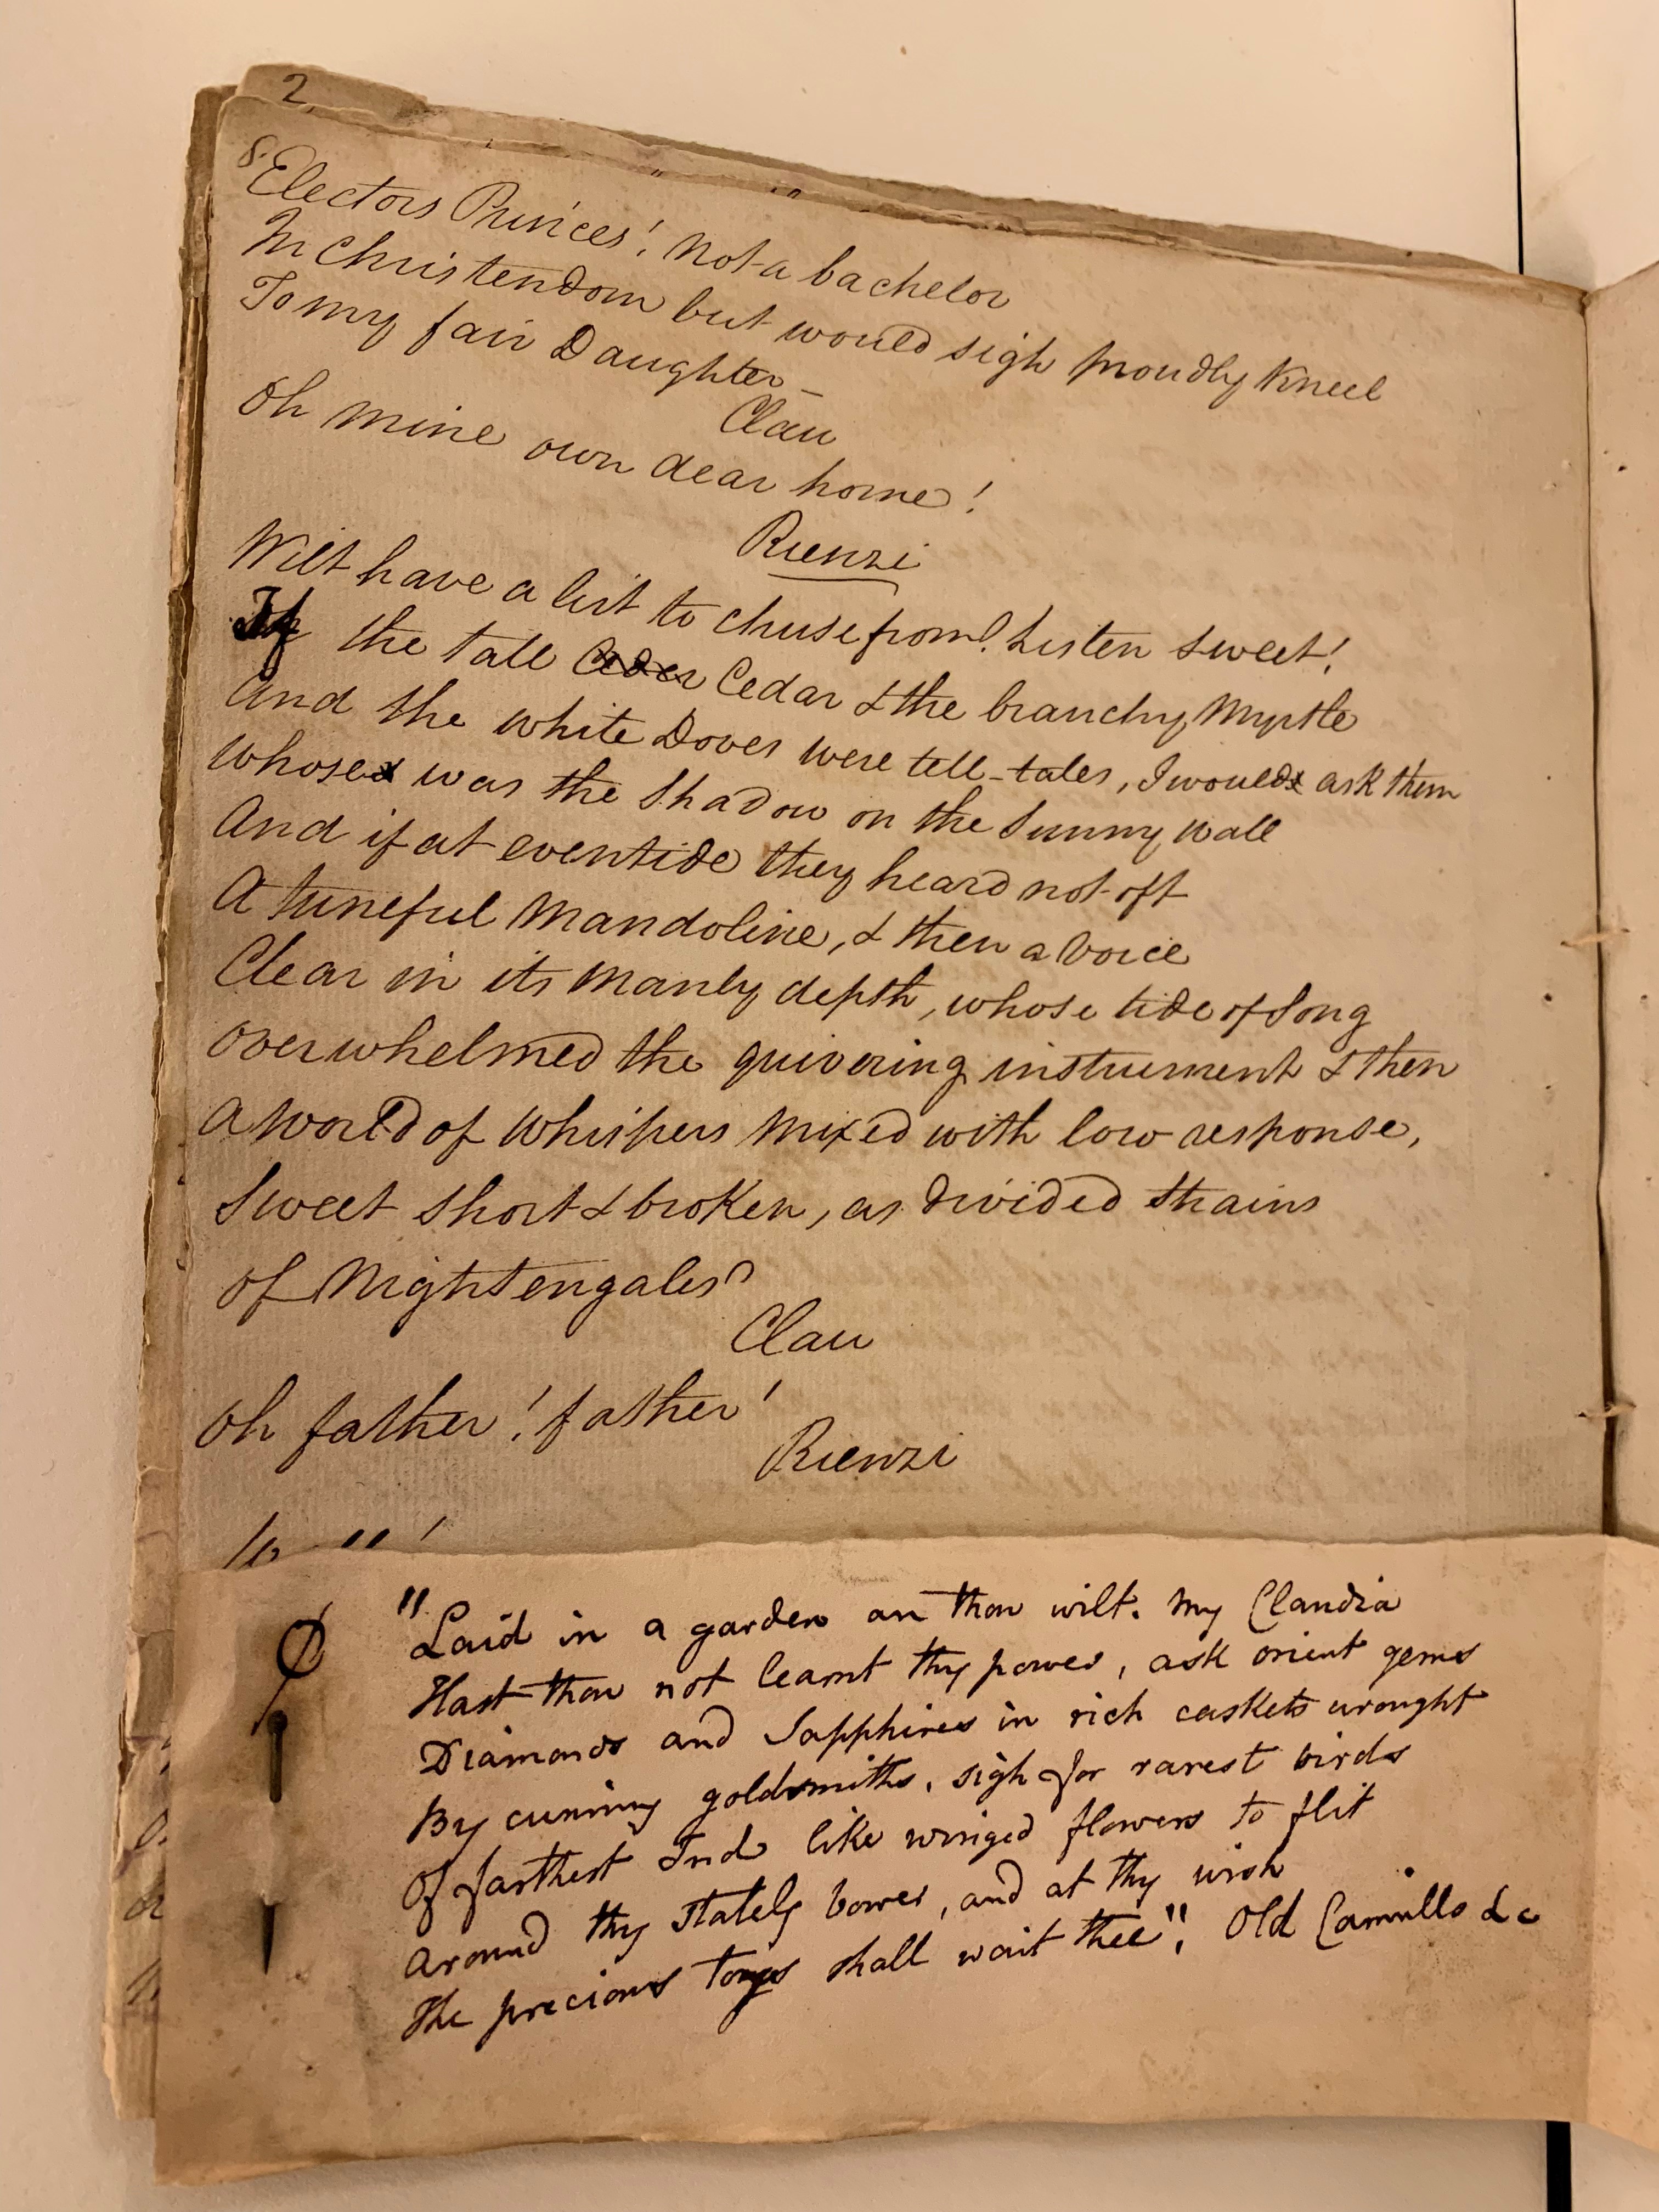 2
8.
Electors Princes! not a bachelor
In Christendom but would sigh proudly kneel
To my fair Daughter –
Clau
Oh mine own dear home!
Rienzi
Wilt have a list to chuse from? Listen sweet!
If the tall Ceder Cedar & the branchy Myrtle
And the white Doves were tell-tales, I would ask them
Whose was the Shadow on the Sunny Wall
And if at eventide they heard not oft
A tuneful Mandoline, & then a Voice
Clear in its Manly depth, whose tide of Song
Overwhelmed the quivering instrument & then
A World of Whispers Mixed with low response,
Sweet Short & broken, as divided Strains
Of Nightengales?
Clau
Oh father! father!
Rienzi
"Laid in a garden an thou wilt. My Claudia
Hast thou not learnt thy power, ask orient gems
Diamonds and Sapphires in rich caskets wrought
By cunning goldsmiths, sigh for rarest birds
Of farthest Ind like winged flowers to flit
Around thy stately bower, and at thy wish
The precious toys shall wait thee". Old Camillo &c